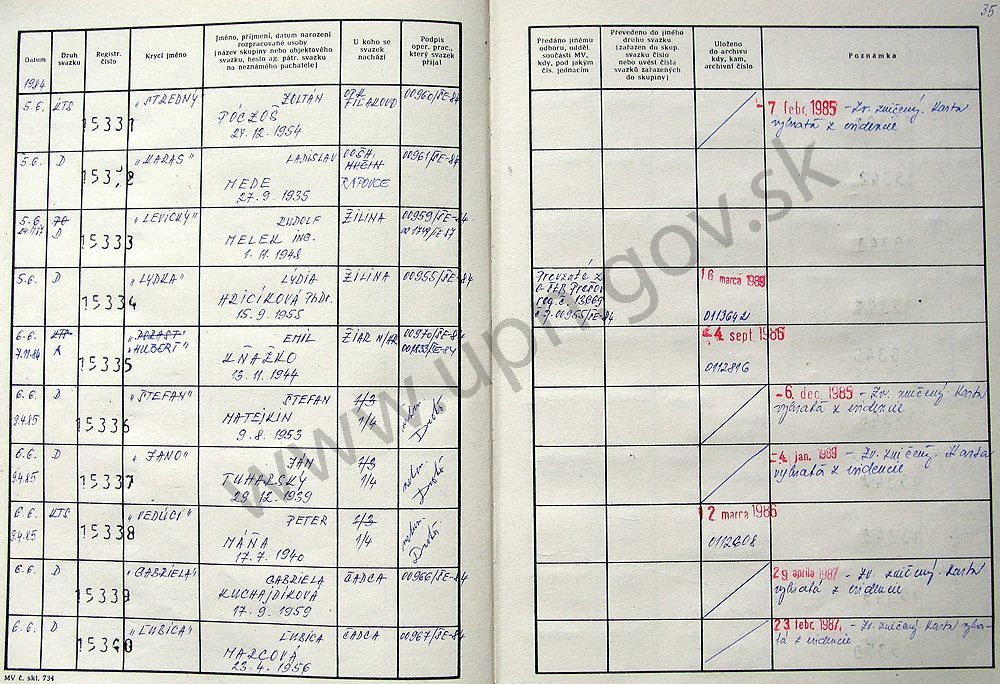 35
Datum
Druh
svazku
Registr.
číslo
Krycí jméno
Jméno, příjmení, datum narození
rozpracované osoby
(název skupiny nebo objektového
svazku, heslo ag. pátr. svazku
na neznámého pachatele)
U koho se
svazek
nachází
Podpis
oper. prac.,
který svazek
přijal
Předáno jinému
odboru, odděl.
součásti MV,
kdy, pod jakým
čís. jednacím
Převedeno do jiného
druhu svazku
(zařazen do skup.
svazku číslo
nebo uvést čísla
svazků zařazených
do skupiny)
Uloženo
do archivu
kdy, kam,
archivní číslo
Poznámka
1984
5.6. KTS 15331 "STREDNÝ" ZOLTÁN
PÓCZOŠ
24.12.1954
FIĽAKOVO
00960/ŠE-84
- 7 febr. 1985 - Zv. zničený. Karta
vybratá z evidencie
5.6. D "KARAS" LADISLAV
MEDE
27.9.1935
RAPOVCE
00961/ŠE-84
5.6. D 15333 "LEVICKÝ" RUDOLF
MELEK ING.
1.11.1948
ŽILINA
00959/ŠE-84
5.6. D 15334 "LYDKA" LÝDIA
HRICÍKOVÁ PhDr.
15.9.1955
ŽILINA
00955/ŠE-84
Prevzaté z
reg. č. 13669
č.j. 00955/ŠE-84
16 marca 1989
6.6. KTS
7.11.84 A 15335 "HUBERT" EMIL
KŇAŽKO
13.11.1944
ŽIAR N/HR
00970/ŠE-84
-4 sept. 1986
0112816
6.6. D
9.4.85 15336 "ŠTEFAN" ŠTEFAN
MATEJKIN
9.8.1953
1/3
1/4
-6. dec. 1985 - Zv. zničený Karta
vybratá z evidencie
6.6. D
9.4.85 15337 "JANO" JÁN
TUHARSKÝ
29.12.1939
1/3
1/4
-4. jan. 1989 - Zv. zničený. Karta
vybratá z evidencie
6.6. KTS
9.4.85 15338 "VEDÚCI" PETER
MÁŇA
17.7.1940
1/3
1/4
12. marca 1986
0112608
6.6. D 15339 "GABRIELA" GABRIELA
KUCHAJDÍKOVÁ
17.9.1959
ČADCA
00966/ŠE-84
29 apríla 1987 - Zv. zničený. Karta
vybratá z evidencie
6.6. D 15340 "ĽUBICA" ĽUBICA
MARCOVÁ
23.4.1956
ČADCA
00967/ŠE-84
23. febr. 1987. - Zv. zničený Karta vybra-
tá z evidencie
MV č. skl. 734
www.upn.gov.sk